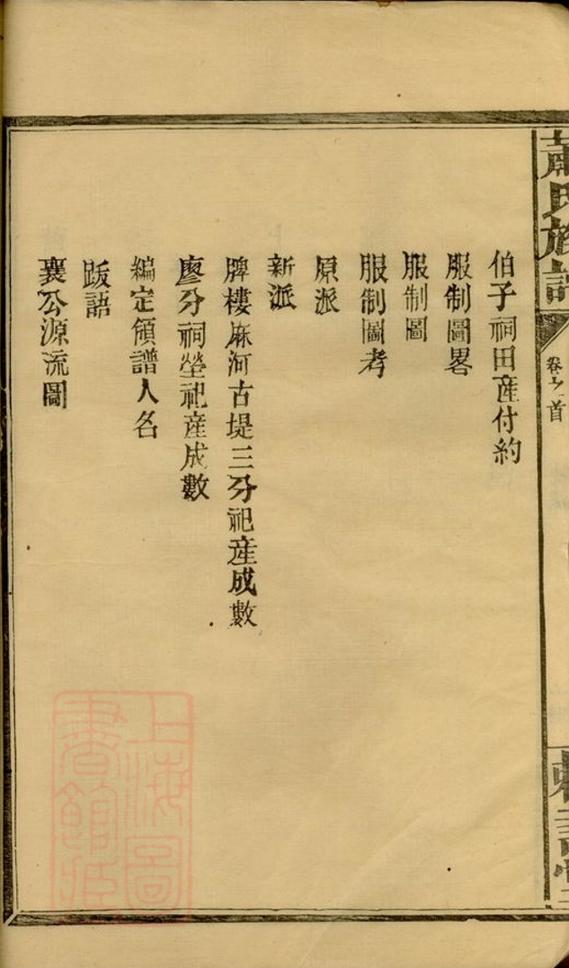 蕭氏族譜
卷之首
伯子祠田產付約
服制圖畧
服制圖
服制圖考
原派
新派
牌樓麻河古堤三分祀產成數
廖分祠塋祀產成數
編定領譜人名
跋語
襄公源流圖
上海圖書館藏